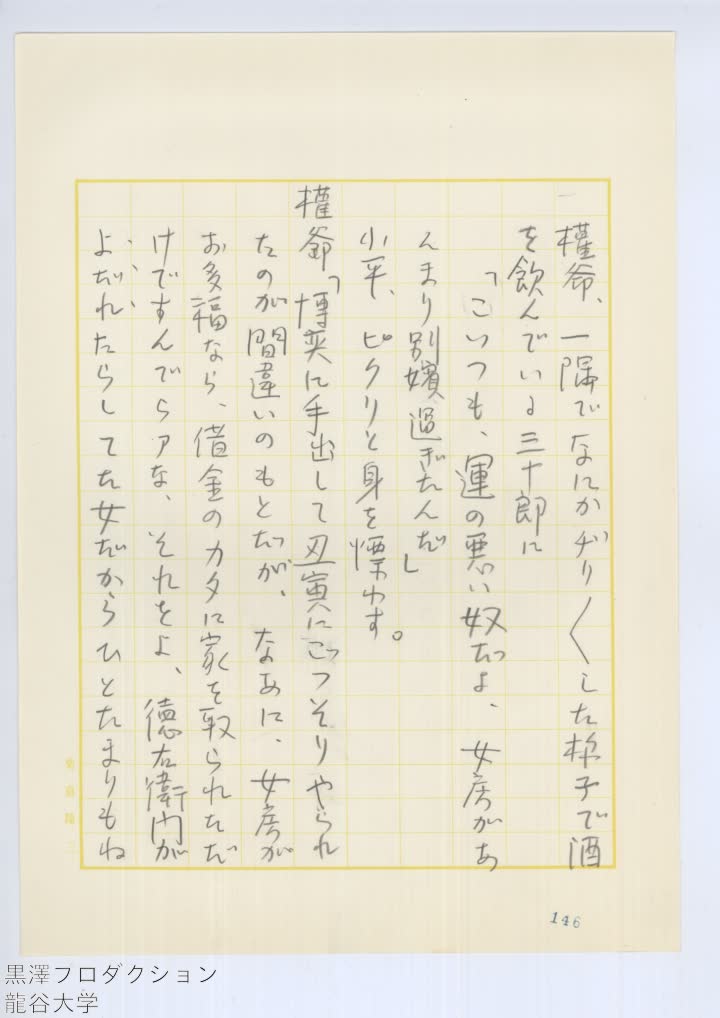 權爺、一隅でなにかヂリ〱した様子で酒
を飲んでいる三十郎に
「こいつも、運の悪い奴だよ、女房があ
んまり別嬪過ぎたんだ」
小平、ピクリと身を慄わす。
權爺「博奕に手出して丑寅にごっそりやられ
たのが間違いのもとだが、なあに、女房が
お多福なら、借金のカタに家を取られただ
けですんでらアな、それをよ、徳右衛門が
よだれたらしてた女だからひとたまりもね
146
黒澤プロダクション
龍谷大学